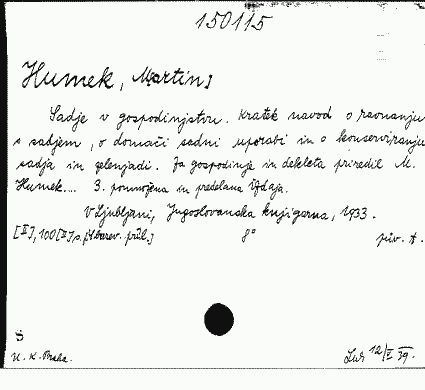 150115
Humek, Martin]
Sadje v gospodinjstvu. Kratek navod o ravnanju
s sadjem, o domači sadni uporabi in o konserviranju
sadja in zelenjadi. Za gospodinje in dekleta priredil M.
Humek.... 3. pomnožena in predelana izdaja.
V Ljubljani, Jugoslovanska knjigarna, 1933.
[II], 100 [II] s, barev. příl.] 8° pův. t.
S
U. K. Praha. 12/V 39.